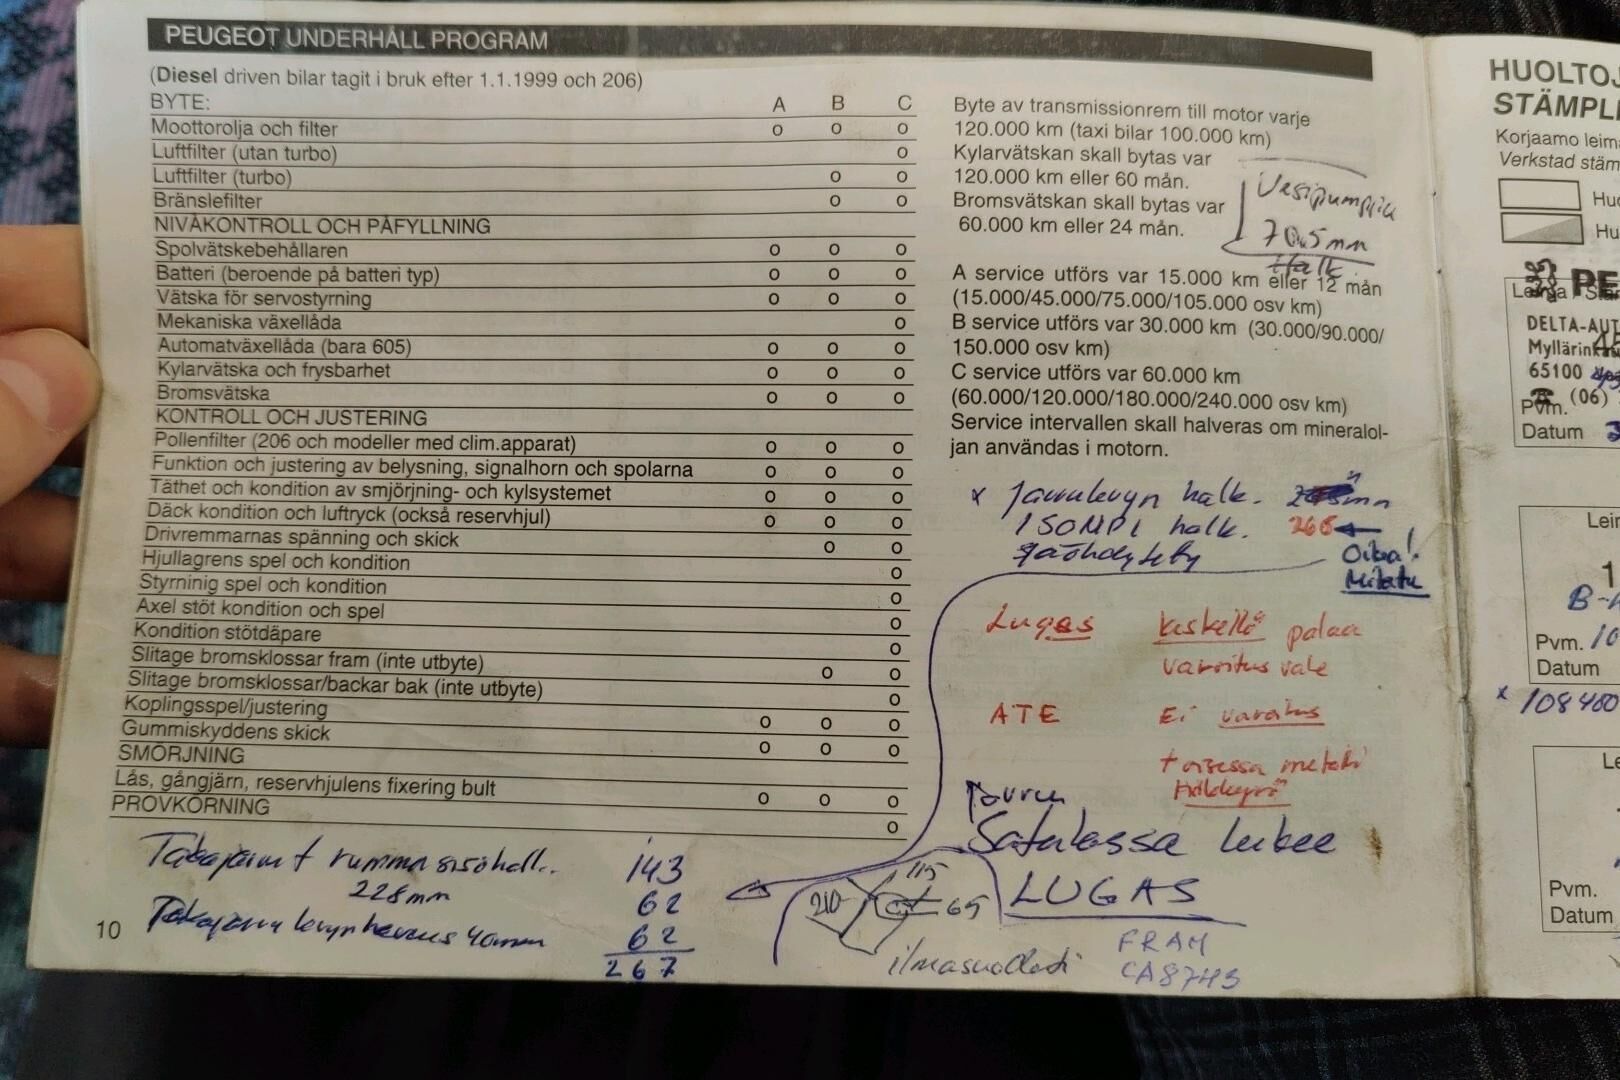 PEUGEOT UNDERHÅLL PROGRAM
(Diesel driven bilar tagit i bruk efter 1.1.1999 och 206)
BYTE: A B C
Moottorolja och filter o o o
Luftfilter (utan turbo) o
Luftfilter (turbo) o o
Bränslefilter o o
NIVÅKONTROLL OCH PÅFYLLNING
Spolvätskebehållaren o o o
Batteri (beroende på batteri typ) o o o
Vätska för servostyrning o o o
Mekaniska växellåda o
Automatväxellåda (bara 605) o o o
Kylarvätska och frysbarhet o o o
Bromsvätska o o o
KONTROLL OCH JUSTERING
Pollenfilter (206 och modeller med clim.apparat) o o o
Funktion och justering av belysning, signalhorn och spolarna o o o
Täthet och kondition av smjörjning- och kylsystemet o o o
Däck kondition och luftryck (också reservhjul) o o o
Drivremmarnas spänning och skick o o
Hjullagrens spel och kondition o
Styrninig spel och kondition o
Axel stöt kondition och spel o
Kondition stötdäpare o
Slitage bromsklossar fram (inte utbyte) o o
Slitage bromsklossar/backar bak (inte utbyte) o
Koplingsspel/justering o o o
Gummiskyddens skick o o o
SMÖRJNING
Lås, gångjärn, reservhjulens fixering bult o o o
PROVKÖRNING o
Byte av transmissionrem till motor varje
120.000 km (taxi bilar 100.000 km)
Kylarvätskan skall bytas var
120.000 km eller 60 mån.
Bromsvätskan skall bytas var
60.000 km eller 24 mån.
Vesipumppu
70.5mm
Halk
A service utförs var 15.000 km eller 12 mån
(15.000/45.000/75.000/105.000 osv km)
B service utförs var 30.000 km (30.000/90.000/
150.000 osv km)
C service utförs var 60.000 km
(60.000/120.000/180.000/240.000 osv km)
Service intervallen skall halveras om mineralol-
jan användas i motorn.
x Jarrulevyn halk. mm
ISOMPI halk. 266
Oikea!
Mitattu
Lugas keskellä palaa
varoitus valo
ATE Ei varoitus
toisessa metalli
Satulassa lukee
LUGAS
FRAM
CA8743
115
210
65
ilmasuodatin
Takajarrut rummun sisähalk..
228mm
Takajarru levyn leveus 40mm
143
62
62
267
10
HUOLTOJ
STÄMPL
Korjaamo leim
Verkstad stäm
Hu
PE
Leima / Stä
DELTA-AUT
Myllärink
65100
(06)
Pvm.
Datum
Leir
1
B-
Pvm. 10
Datum
x 108400
Le
Pvm.
Datum